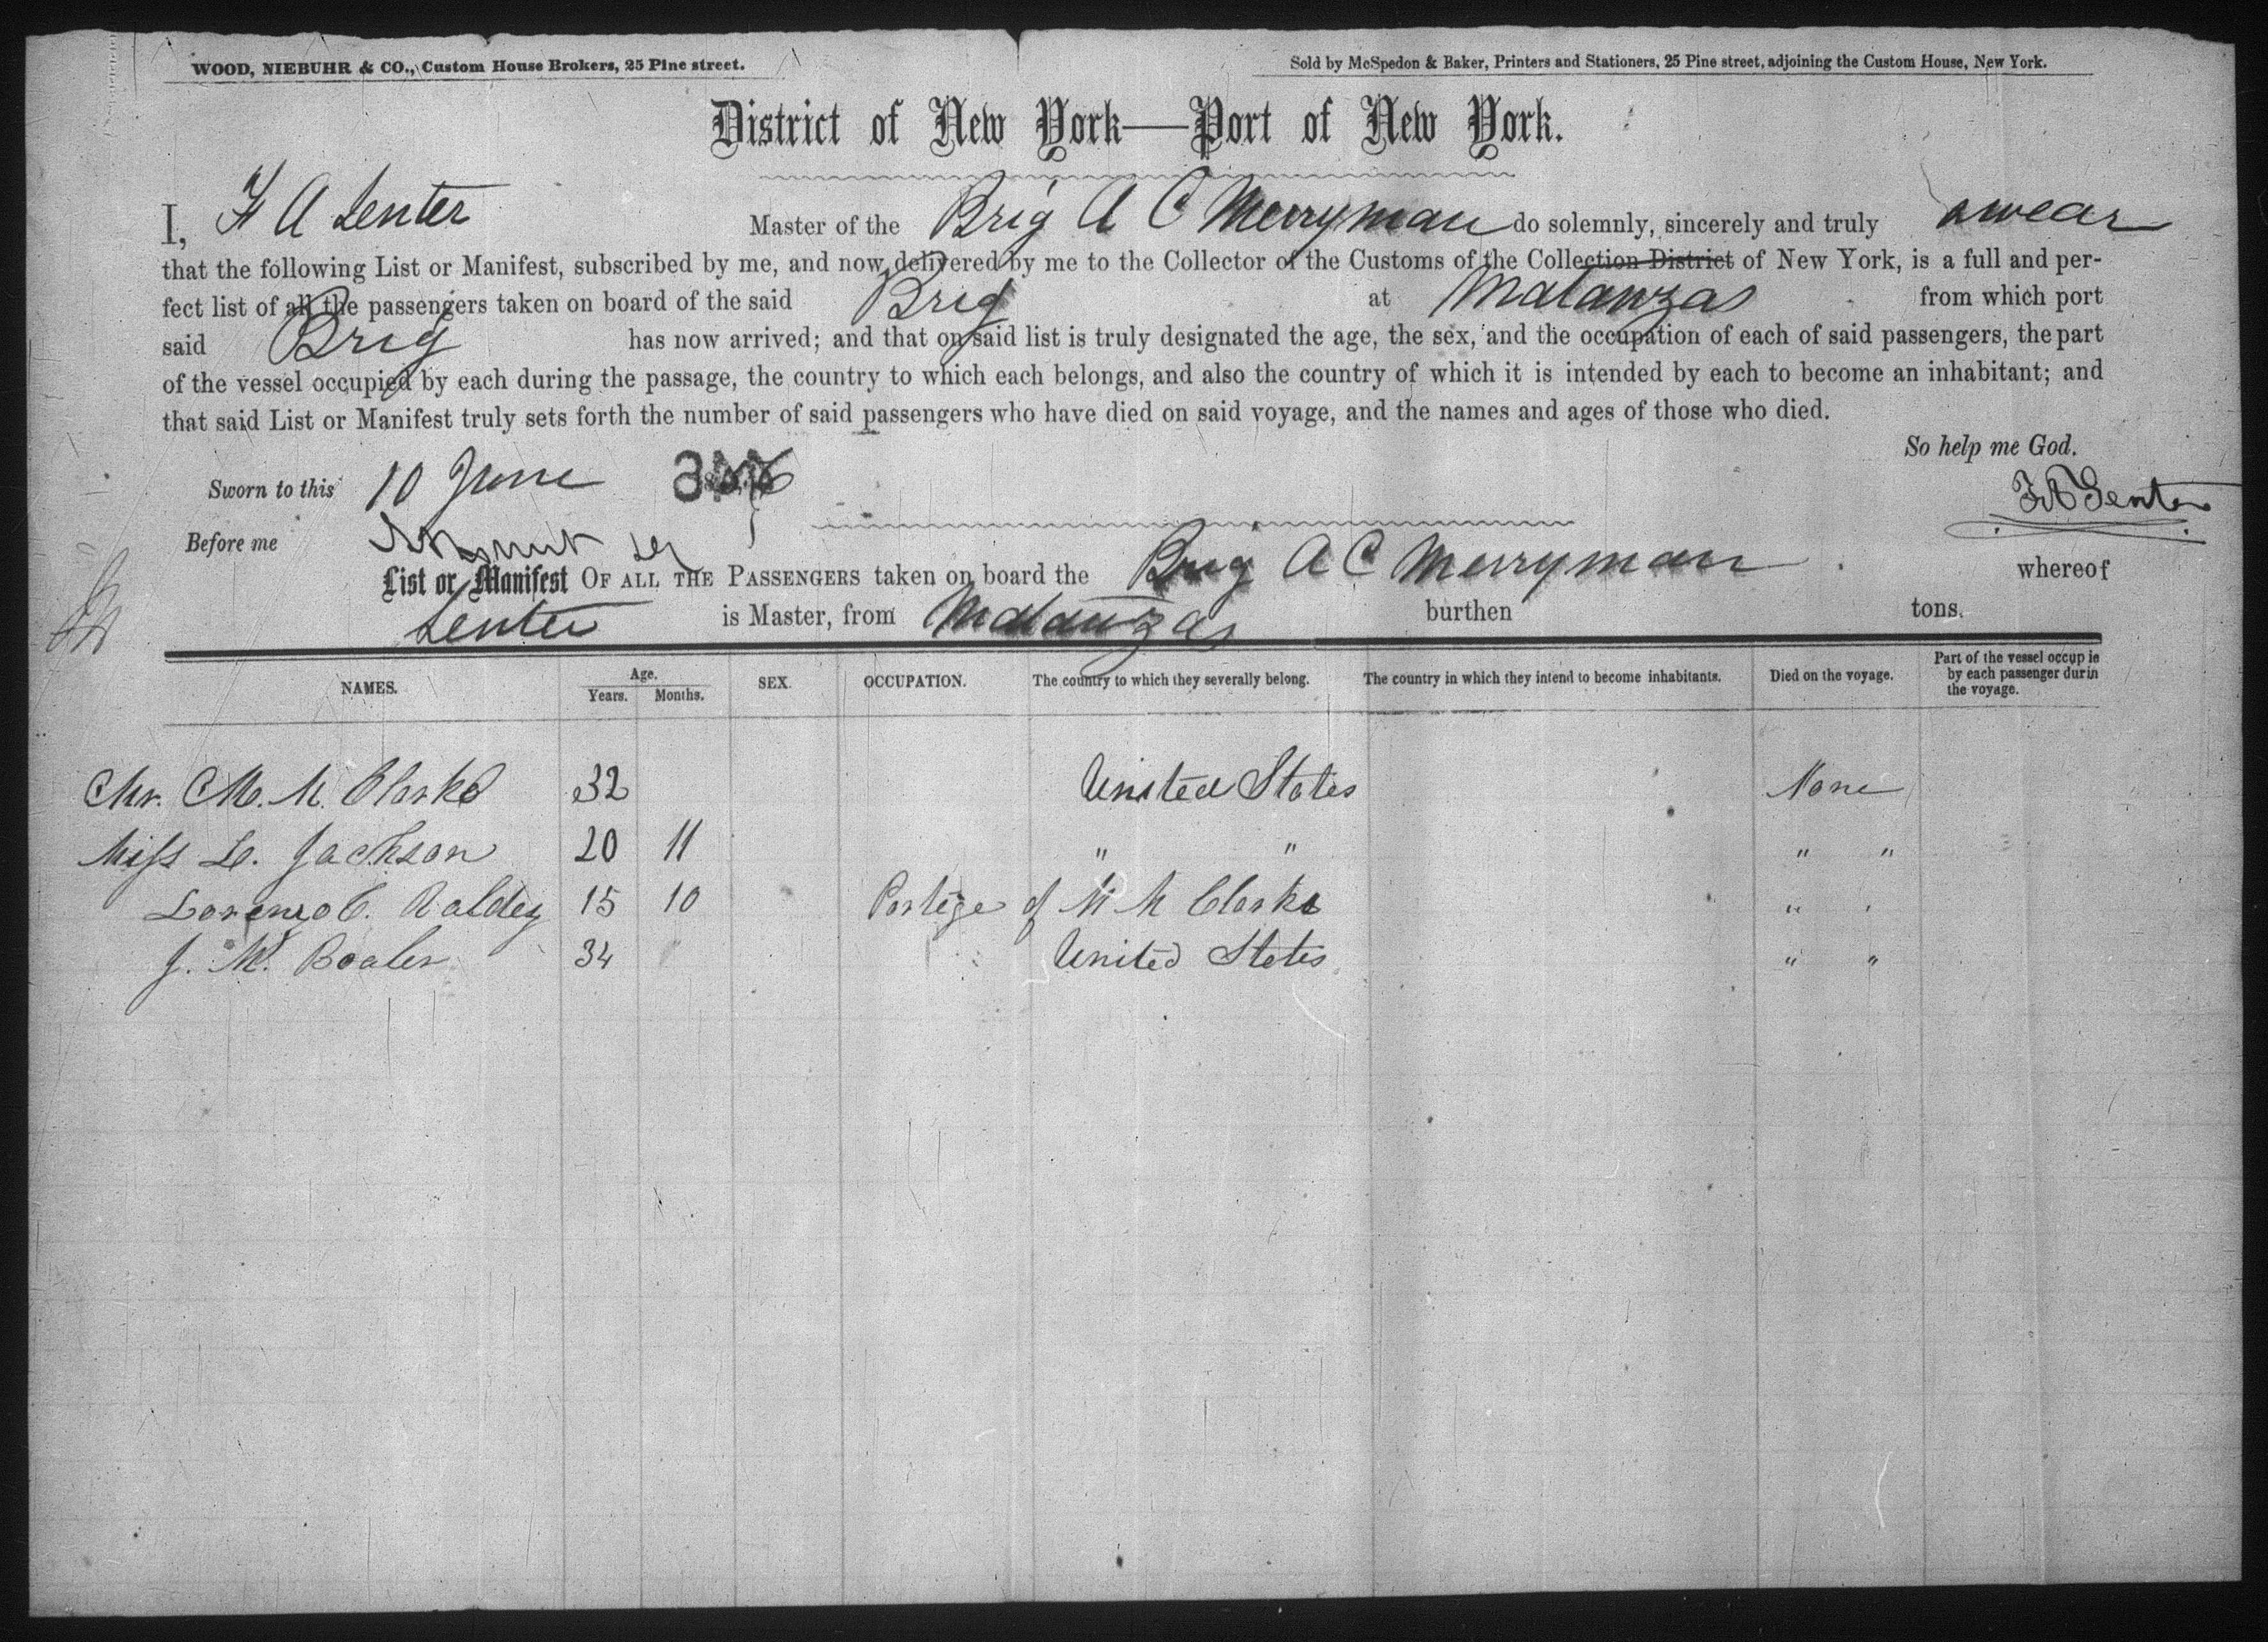 WOOD, NIEBUHR & CO., Custom House Brokers, 25 Pine street.
Sold by McSpedon & Baker, Printers and Stationers, 25 Pine street, adjoining the Custom House, New York.
District of New York—Port of New York.
I, F A Senter Master of the Brig A C Merryman do solemnly, sincerely and truly swear
that the following List or Manifest, subscribed by me, and now delivered by me to the Collector of the Customs of the Collection District of New York, is a full and per-
fect list of all the passengers taken on board of the said Brig at Matanzas from which port
said Brig has now arrived; and that on said list is truly designated the age, the sex, and the occupation of each of said passengers, the part
of the vessel occupied by each during the passage, the country to which each belongs, and also the country of which it is intended by each to become an inhabitant; and
that said List or Manifest truly sets forth the number of said passengers who have died on said voyage, and the names and ages of those who died.
So help me God.
Sworn to this 10 June
F A Senter
Before me
List or Manifest OF ALL THE PASSENGERS taken on board the Brig A C Merryman whereof
Senter is Master, from Matanzas burthen tons.
NAMES. Age. Years. Months. SEX. OCCUPATION. The country to which they severally belong. The country in which they intend to become inhabitants. Died on the voyage. Part of the vessel occupie by each passenger durin the voyage.
Mr. M. M. Clarke 32 United States None
Miss L. Jackson 20 11 " " " "
Lorenzo C. Valdez 15 10 Portège of M M Clarke " "
J. M. Boaler 34 United States " "